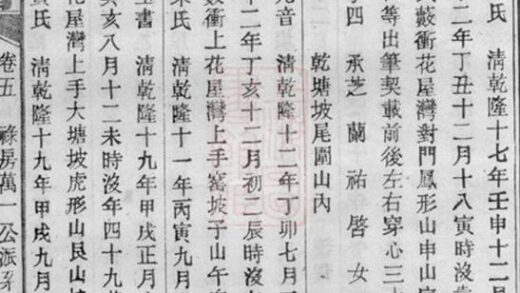 氏 清乾隆十七年壬申十二
二年丁丑十二月十八寅時沒
鼓衝花屋灣對門鳳形山申山
等出筆契載前後左右穿心三
四 承芝 蘭 祐 啓 女
乾塘坡尾圖山內
音 清乾隆十二年丁卯七月
二年丁亥十二月初二辰時沒
鼓衝上花屋灣上手窰坡子山午
氏 清乾隆十一年丙寅九月
書 清乾隆十九年甲戌正月
亥八月十二未時沒年四十九
花屋灣上手大塘坡虎形山艮山
氏 清乾隆十九年甲戌九月
卷五 祿房萬一公派系